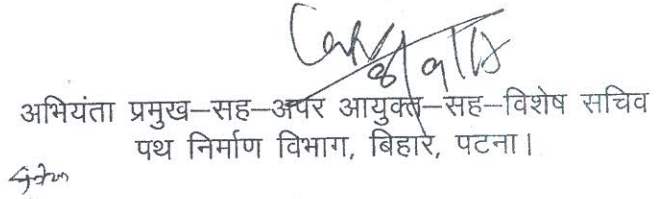 अभियंता प्रमुख–सह–अपर आयुक्त–सह–विशेष सचिव
पथ निर्माण विभाग, बिहार, पटना।